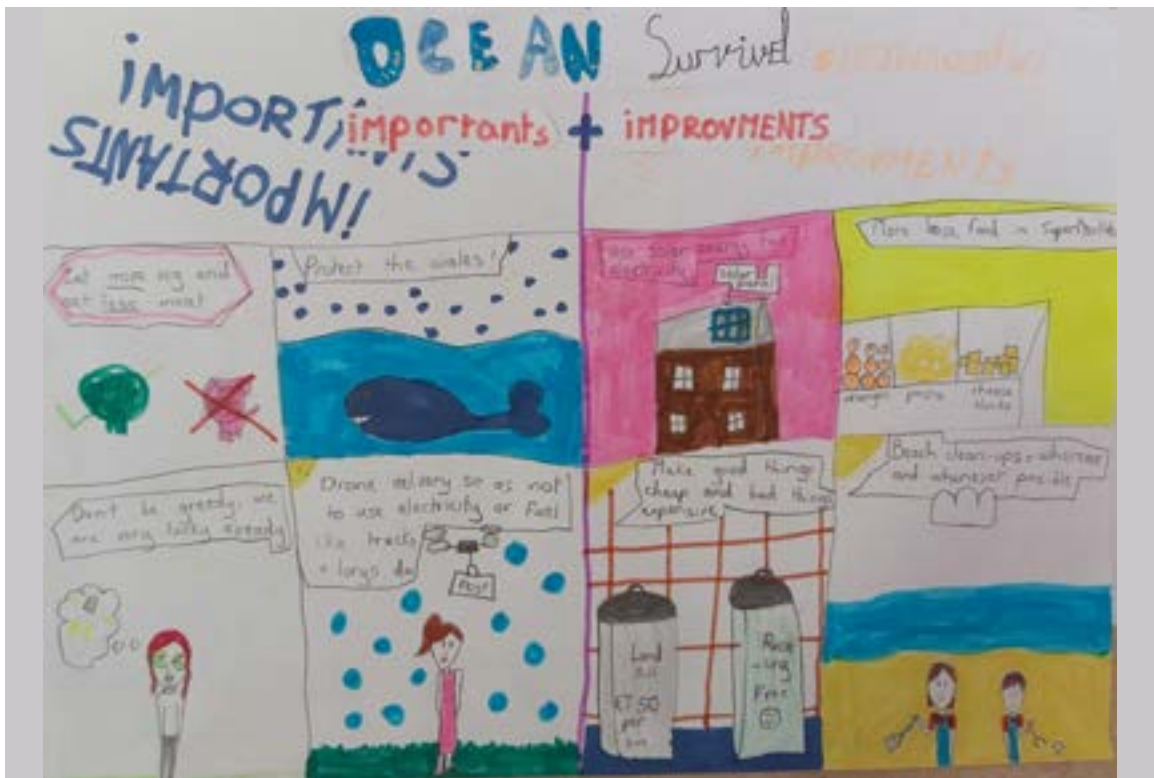 OCEAN Survival
IMPORTANTS
importants + IMPROVMENTS
IMPORTANTS
IMPROVMENTS
Eat more veg and
eat less meat
Protect the wales!
Use solar energy for
electricity
Solar
panel
More loose food in
oranges
pasta
cheese
blocks
Don't be greedy, we
are very lucky already
Drone delivery so as not
to use electricity or fuel
like trucks
+ lorys do
POST
Make good things
cheap and bad things
expensive
Land
fill
per
bin
Recyc
-ling
Free
Beach clean-ups wherever
and whenever possible